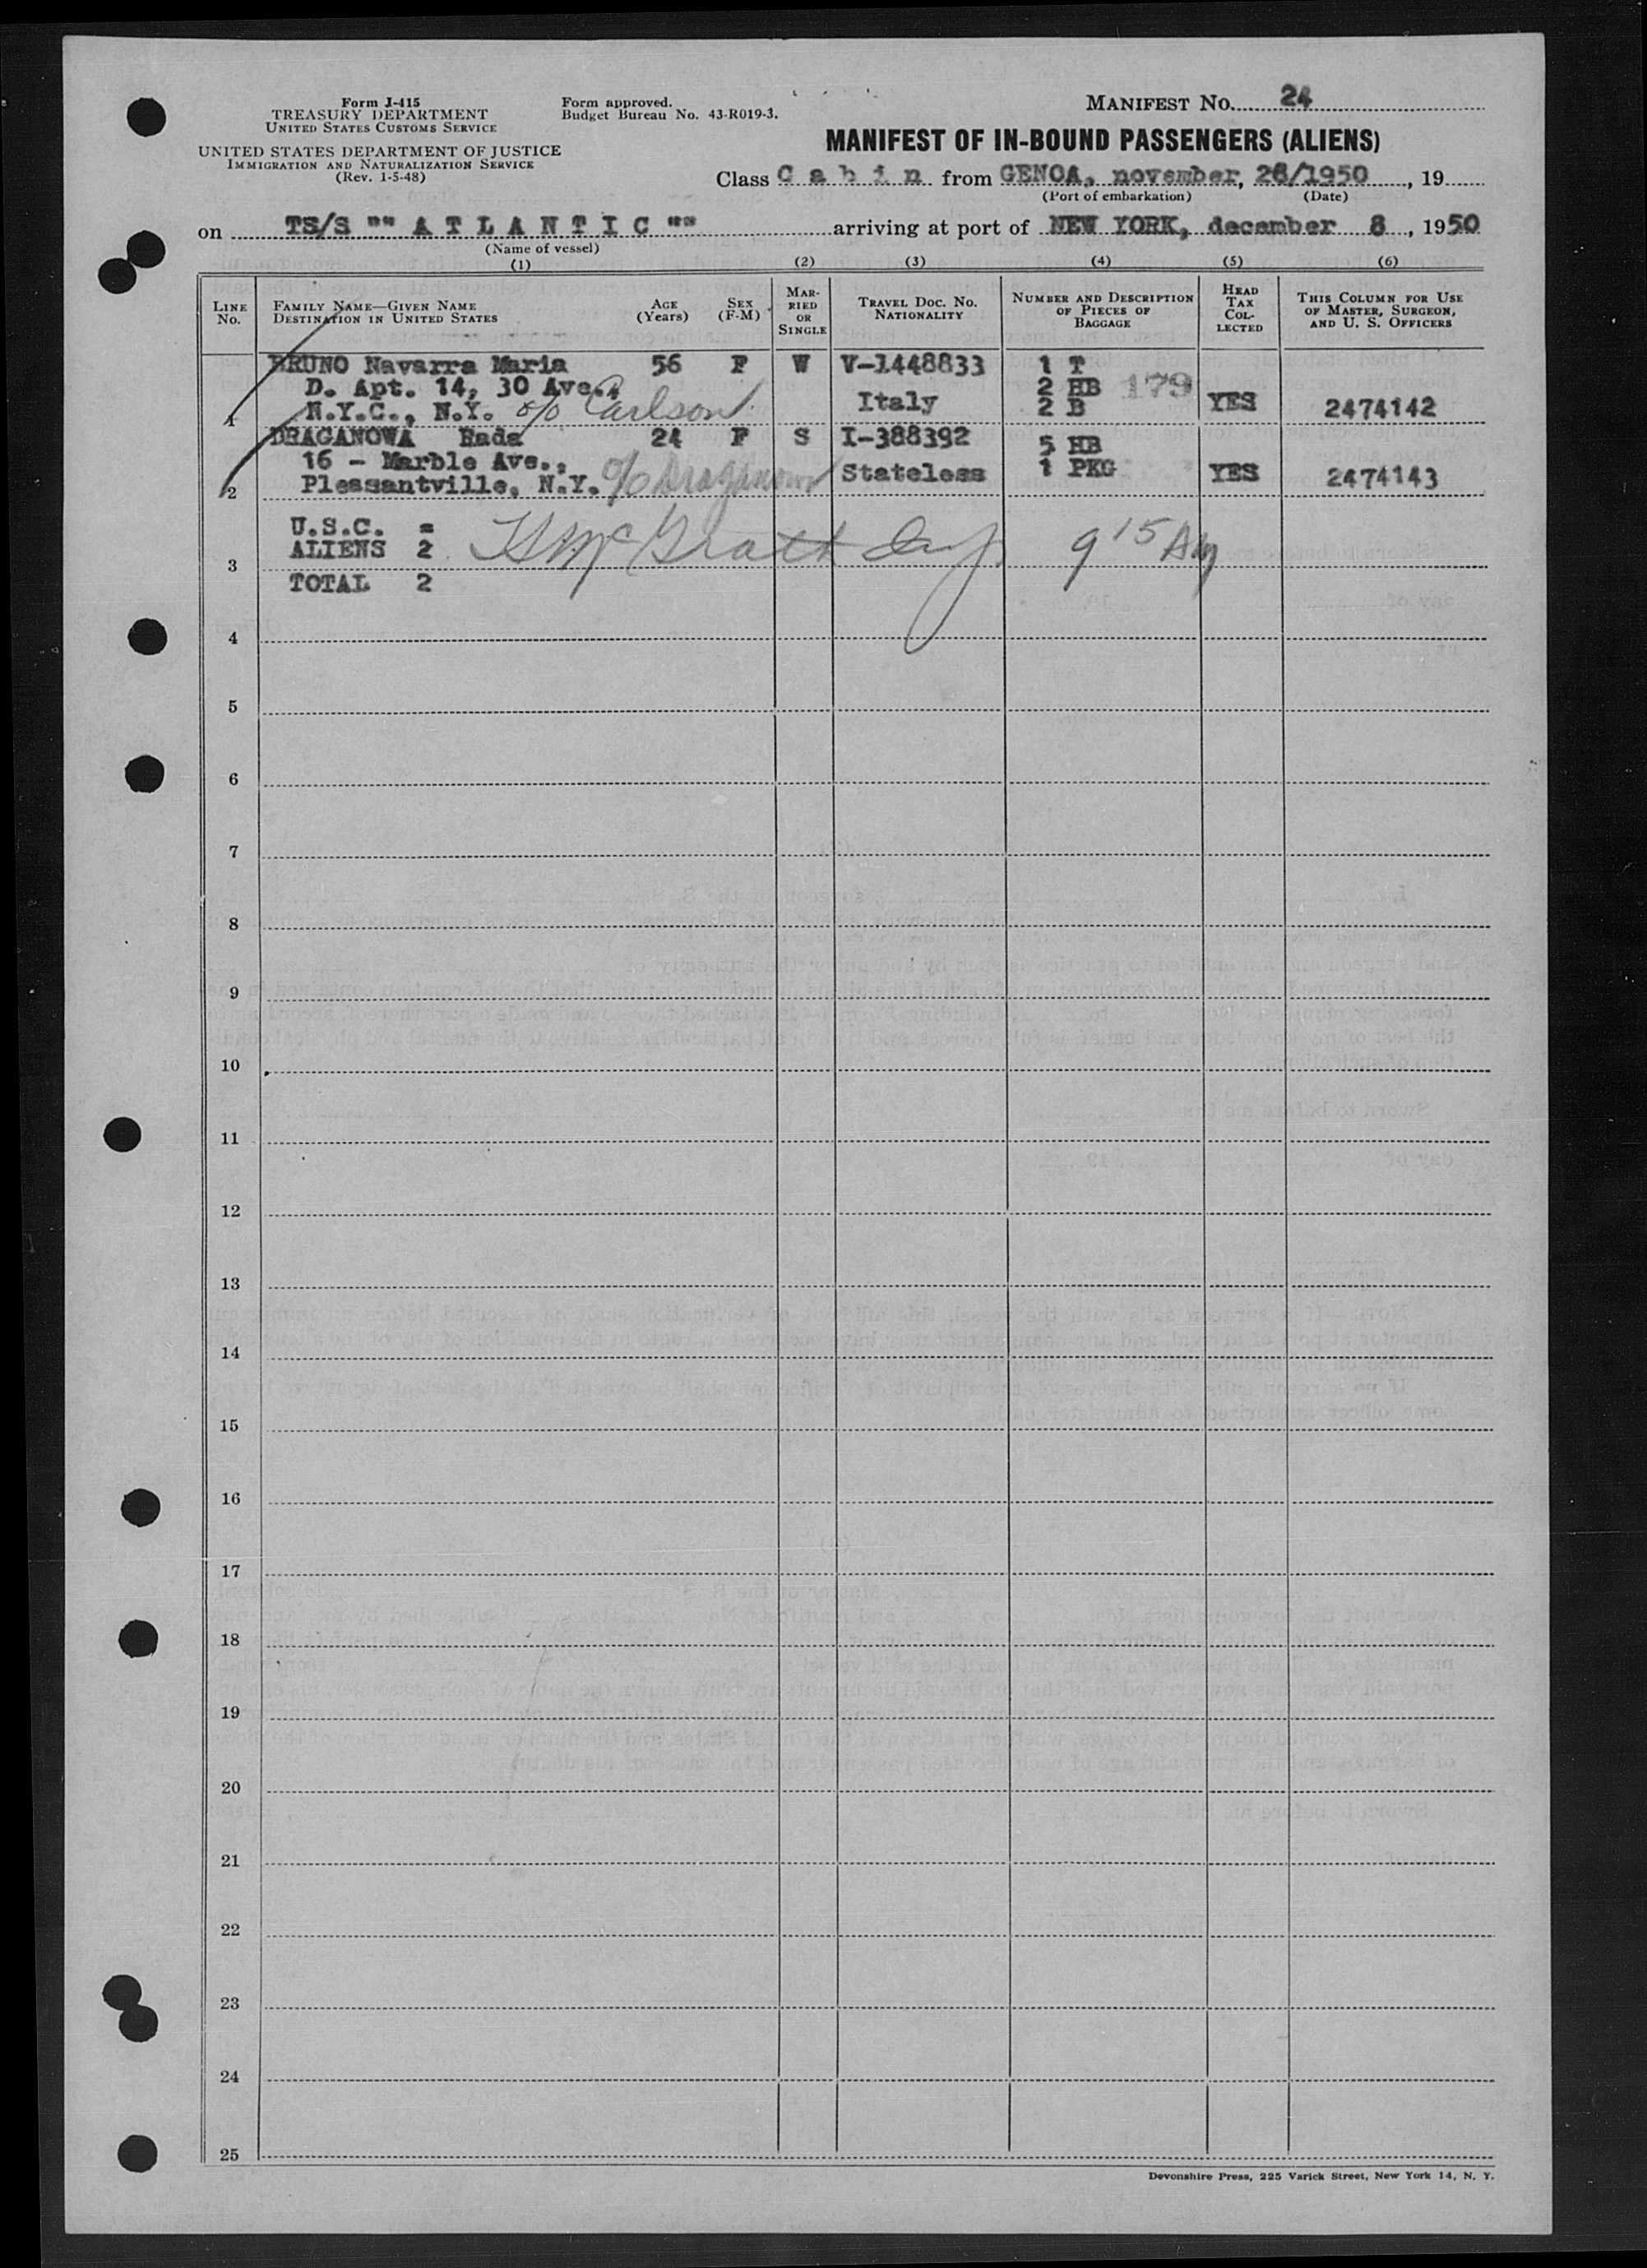 Form J-415
TREASURY DEPARTMENT
UNITED STATES CUSTOMS SERVICE
UNITED STATES DEPARTMENT OF JUSTICE
IMMIGRATION AND NATURALIZATION SERVICE
(Rev. 1-5-48)
Form approved.
Budget Bureau No. 43-R019-3.
MANIFEST No. 24
MANIFEST OF IN-BOUND PASSENGERS (ALIENS)
Class C a b i n from GENOA, november, 26/1950, 19
(Port of embarkation) (Date)
on TS/S "" A T L A N T I C "" arriving at port of NEW YORK, december 8, 1950
(Name of vessel)
(1) (2) (3) (4) (5) (6)
LINE No.
FAMILY NAME—GIVEN NAME
DESTINATION IN UNITED STATES
AGE (Years)
SEX (F-M)
MARRIED OR SINGLE
TRAVEL DOC. NO.
NATIONALITY
NUMBER AND DESCRIPTION OF PIECES OF BAGGAGE
HEAD TAX COLLECTED
THIS COLUMN FOR USE OF MASTER, SURGEON, AND U. S. OFFICERS
BRUNO Navarra Maria 56 F W V-1448833 1 T
D. Apt. 14, 30 Ave., 2 HB 179
1 N.Y.C., N.Y. c/o Carlson Italy 2 B YES 2474142
DRAGANOWA Rada 24 F S I-388392 5 HB
16 - Marble Ave., Stateless 1 PKG YES 2474143
2 Pleasantville, N.Y. c/o Draganow
U.S.C. =
ALIENS 2 McGrath Insp 9 15 AM
3
TOTAL 2
4
5
6
7
8
9
10
11
12
13
14
15
16
17
18
19
20
21
22
23
24
25
Devonshire Press, 225 Varick Street, New York 14, N. Y.